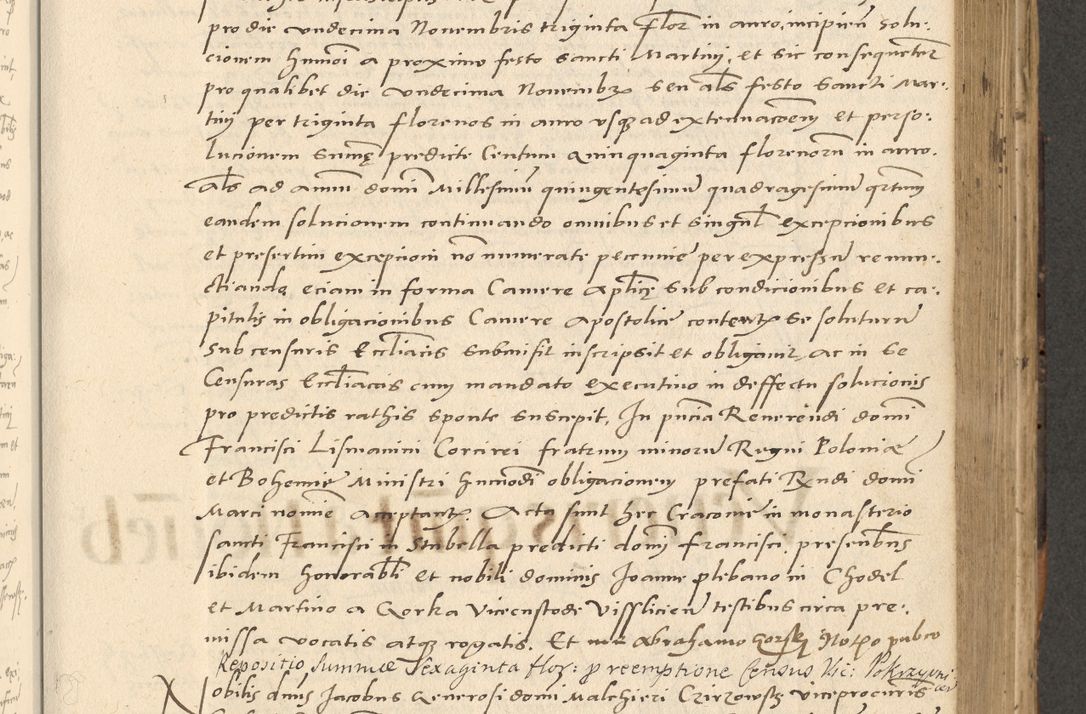 pro die undecima Novembris triginta flor in auro, incipien solu:
cionem hmoi a proximo festo sancti Martini, et sic consequeter
pro qualibet die undecima Novembr seu als festo sancti Mar:
tini per triginta florenos in auro usq ad extenuacoem et perso:
lucionem sume predicte Centum quinquaginta florenoru in auro.
als ad annu domi Millesimu quingentesimu quadragesimu qrtum
eandem solucionem continuando omnibus et singul excepcionibus
et presertim excepcioni no numerate peccunie per expressu renun:
ctiando, eciam in forma Camere aplice sub condicionibus et ca:
pitulis in obligacionibus Camere Apostolice content se soluturu
sub censuris Eccliacis submisit inscripsit et obligavit, ac in se
Censuras Eccliacas cum mandato executivo in deffectu solucionis
pro predictis rathis sponte suscepit, In pncia Reverendi domi
Francisci Lismanini Corcirei fratrum minoru Regni Poloniae
et Bohemie Ministri hmodi obligacionem prefati Rndi domi
Marci nomie acceptant. Acta sunt hec Cracovie in monasterio
sancti Francisci in Stubella predicti domi Francisci. presentibus
ibidem honorabli et nobili dominis Joanne plebano in Chodel
et Martino a Gorka Vicecustode Vissliciens testibus circa pre:
missa vocatis atq rogatis. Et me Abrahamo Gorsky Notrio pubco
Repositio summae sexaginta flor: p reemptione Census Vic: Pokrzywni
Nobilis dnus Jacobus Generosi domi Malchieri Czirzowsky viceprocuris